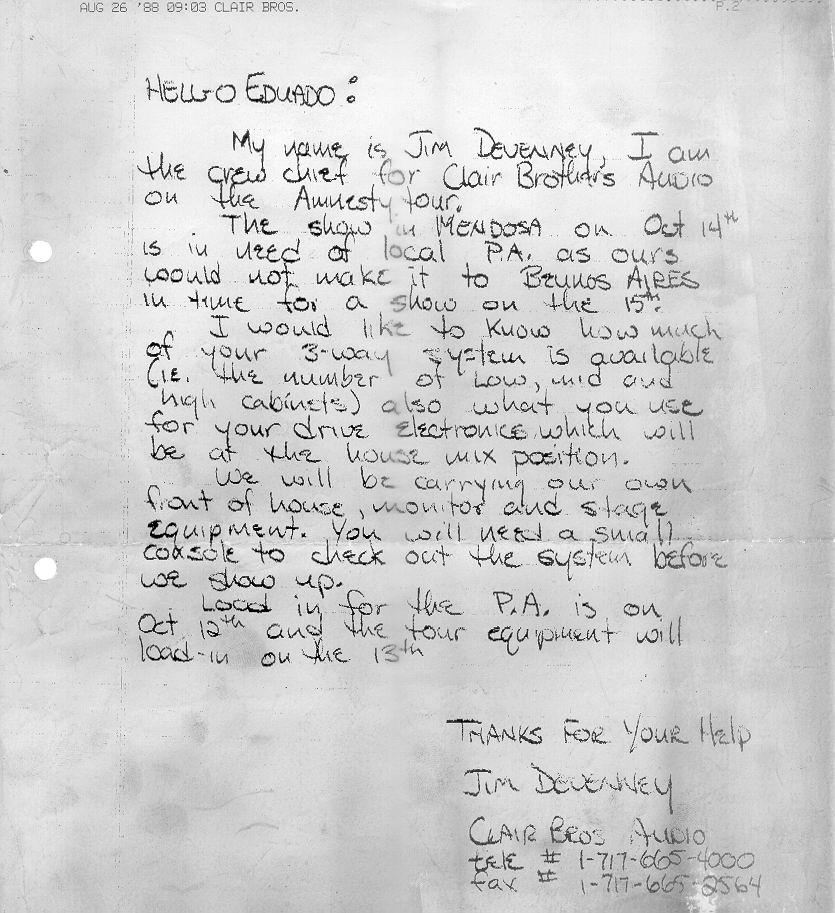 AUG 26 '88 09:03 CLAIR BROS. P.2
HELLO EDUADO:
My name is JIM DEVENNEY, I am
the crew chief for Clair Brothers AUDIO
on the Amnesty tour.
The show in MENDOSA on Oct 14th
is in need of local P.A. as ours
would not make it to BEUNOS AIRES
in time for a show on the 15th.
I would like to know how much
of your 3-way system is available
(IE. the number of Low, mid and
high cabinets) also what you use
for your drive electronics which will
be at the house mix position.
We will be carrying our own
front of house, monitor and stage
equipment. You will need a small
console to check out the system before
we show up.
Load in for the P.A. is on
Oct 12th and the tour equipment will
load-in on the 13th
THANKS FOR YOUR HELP
JIM DEVENNEY
CLAIR BROS AUDIO
tele # 1-717-665-4000
fax # 1-717-665-2564